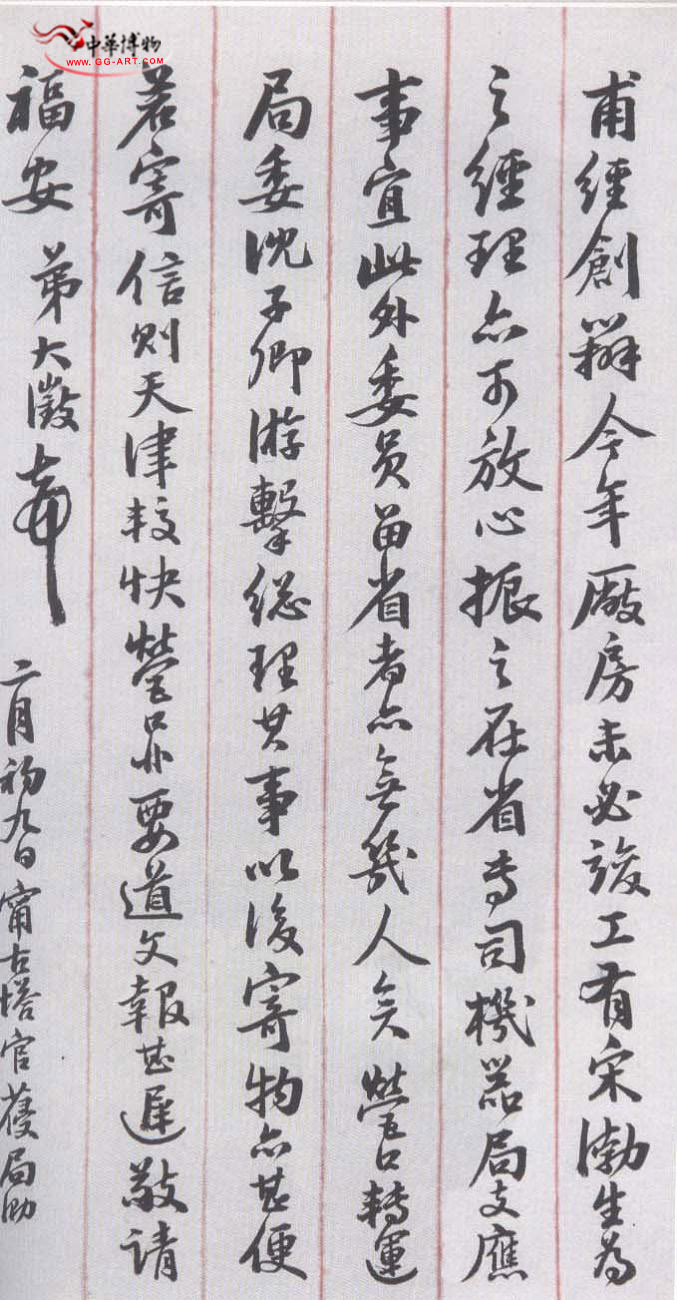 中華博物
www.GG-ART.COM
甫經創辦今年廠房未必竣工有宋渤生為
之經理亦可放心振之在省專司機器局支應
事宜此外委員留省者亦無幾人矣營口轉運
局委沈子卿游擊總理其事以後寄物亦甚便
若寄信則天津較快營口非要道文報甚遲敬請
福安 弟大澂頓
二月初九日甯古塔官
局